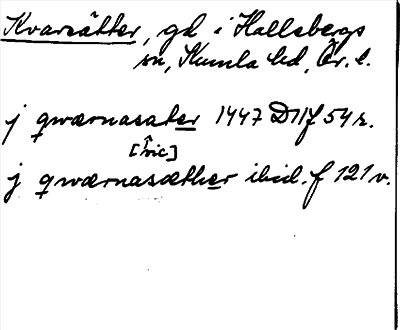 Kvarsätter, gd i Hallsbergs
sn, Kumla hd, Ör. l.
j qwærnasater 1447 D11 f 54 r.
[sic]
j qwærnasæther ibid. f 121 v.